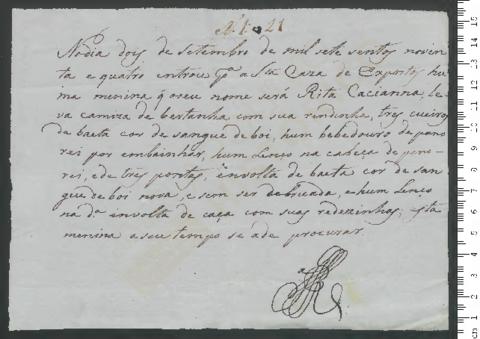 Nº 1º 21
No dia dois de Setembro de mil sete sentos novin
ta e quatro entrou pª a Stª Caza de Expostos hu
ma menina q̃ o seu nome será Rita Caciana, le
va camiza de bertanha com sua rendinha, tres cueiros
de baeta cor de sangue de boi, hum bebedouro de pano
rei por embainhar, hum Lenço na cabeça de pano
rei, e de tres pontas, involta de baeta cor de san
gue de boi nova, e sem ser debruada, e hum Lenço
na dª involta de caça com suas radexinhas; esta
menina a seu tempo se a de procurar